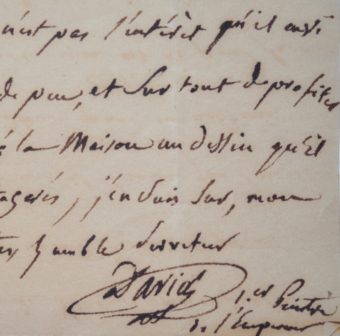 n'est pas l'intérêt qu'il
de peu, et sur tout de profiter
la Maison au dessin qu'il
j'en suis sur, mon
humble serviteur
David 1.er Peintre
de l'Empereur